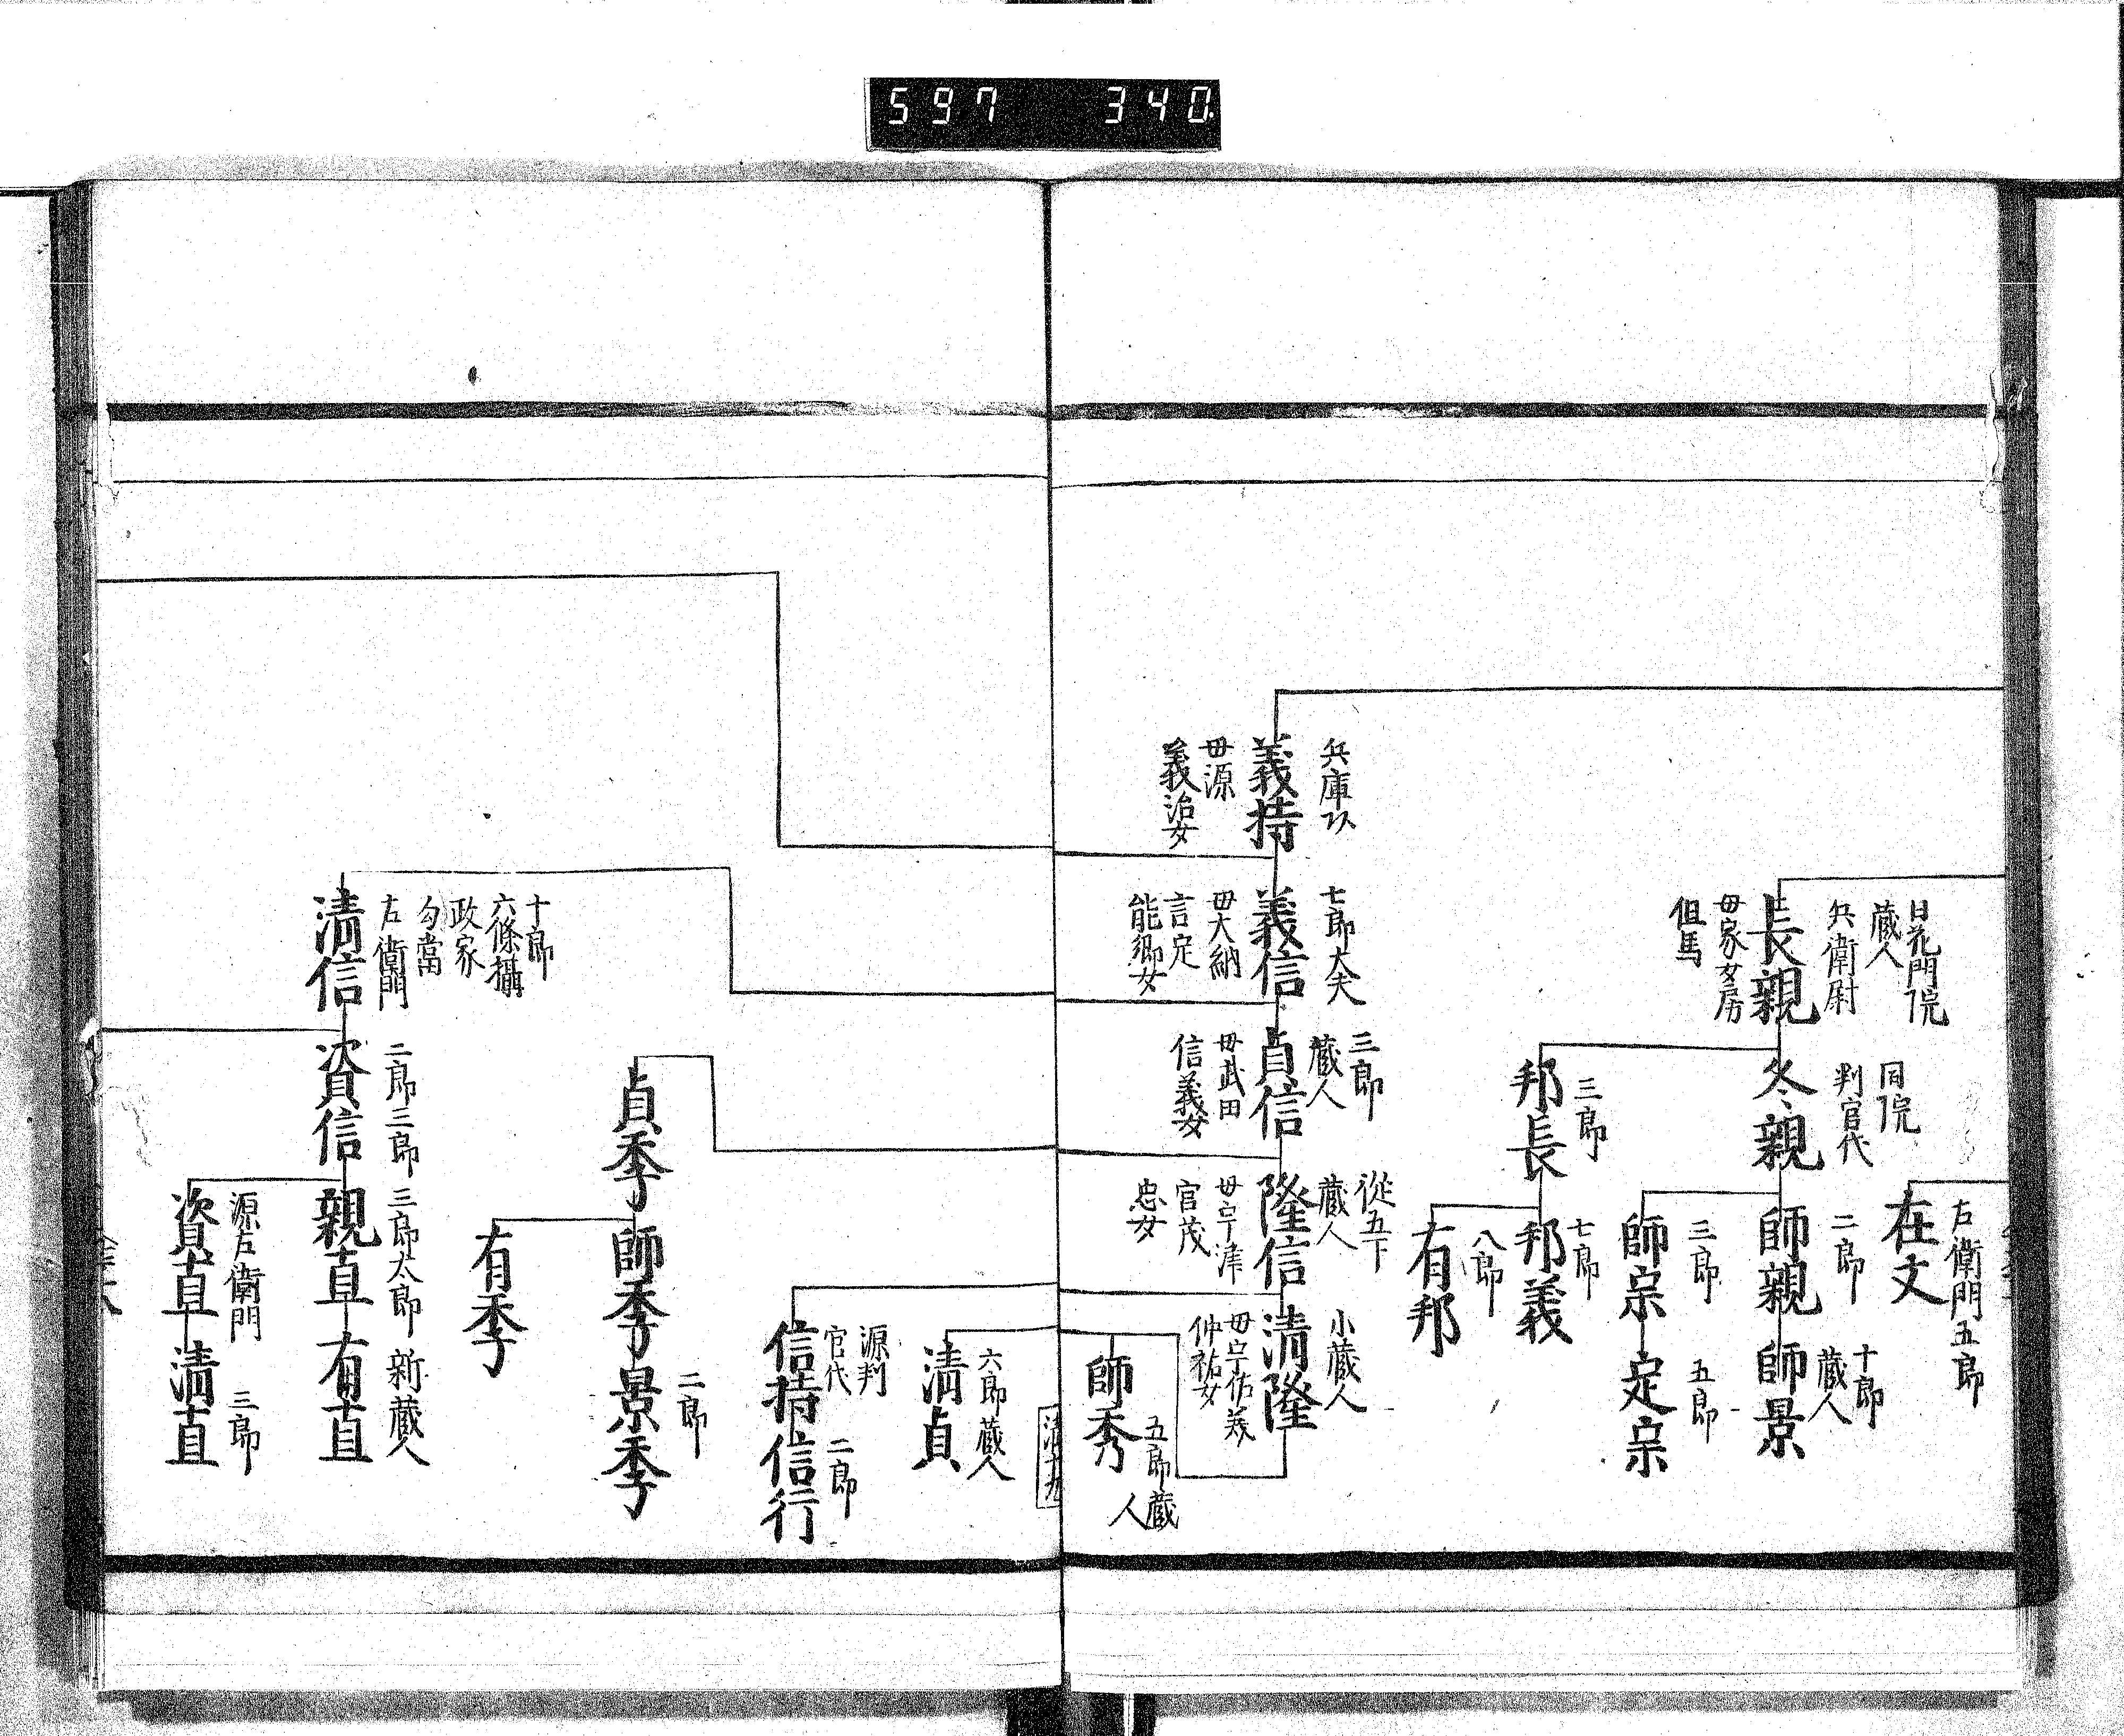 597 340
右衛門五郎
在文
日花門院
蔵人
兵衛尉
長親
母家女房
但馬
同院
判官代
冬親
二郎
師親
十郎
蔵人
師景
三郎
師宗
五郎
定宗
三郎
邦長
七郎
邦義
八郎
有邦
兵庫
義持
母源
義治女
七郎大夫
義信
母大納
言定
能卿女
三郎
蔵人
貞信
母武田
信義女
從五下
蔵人
隆信
母宇津
官茂
忠女
小蔵人
清隆
母宇佐義
仲祐女
五郎蔵
人
師秀
六郎蔵人
清貞
源判
官代
信持
二郎
信行
貞季
師季
二郎
景季
有季
十郎
六條攝
政家
勾當
左衛門
清信
二郎三郎
資信
三郎太郎
親直
新蔵人
有直
源左衛門
資直
三郎
清直